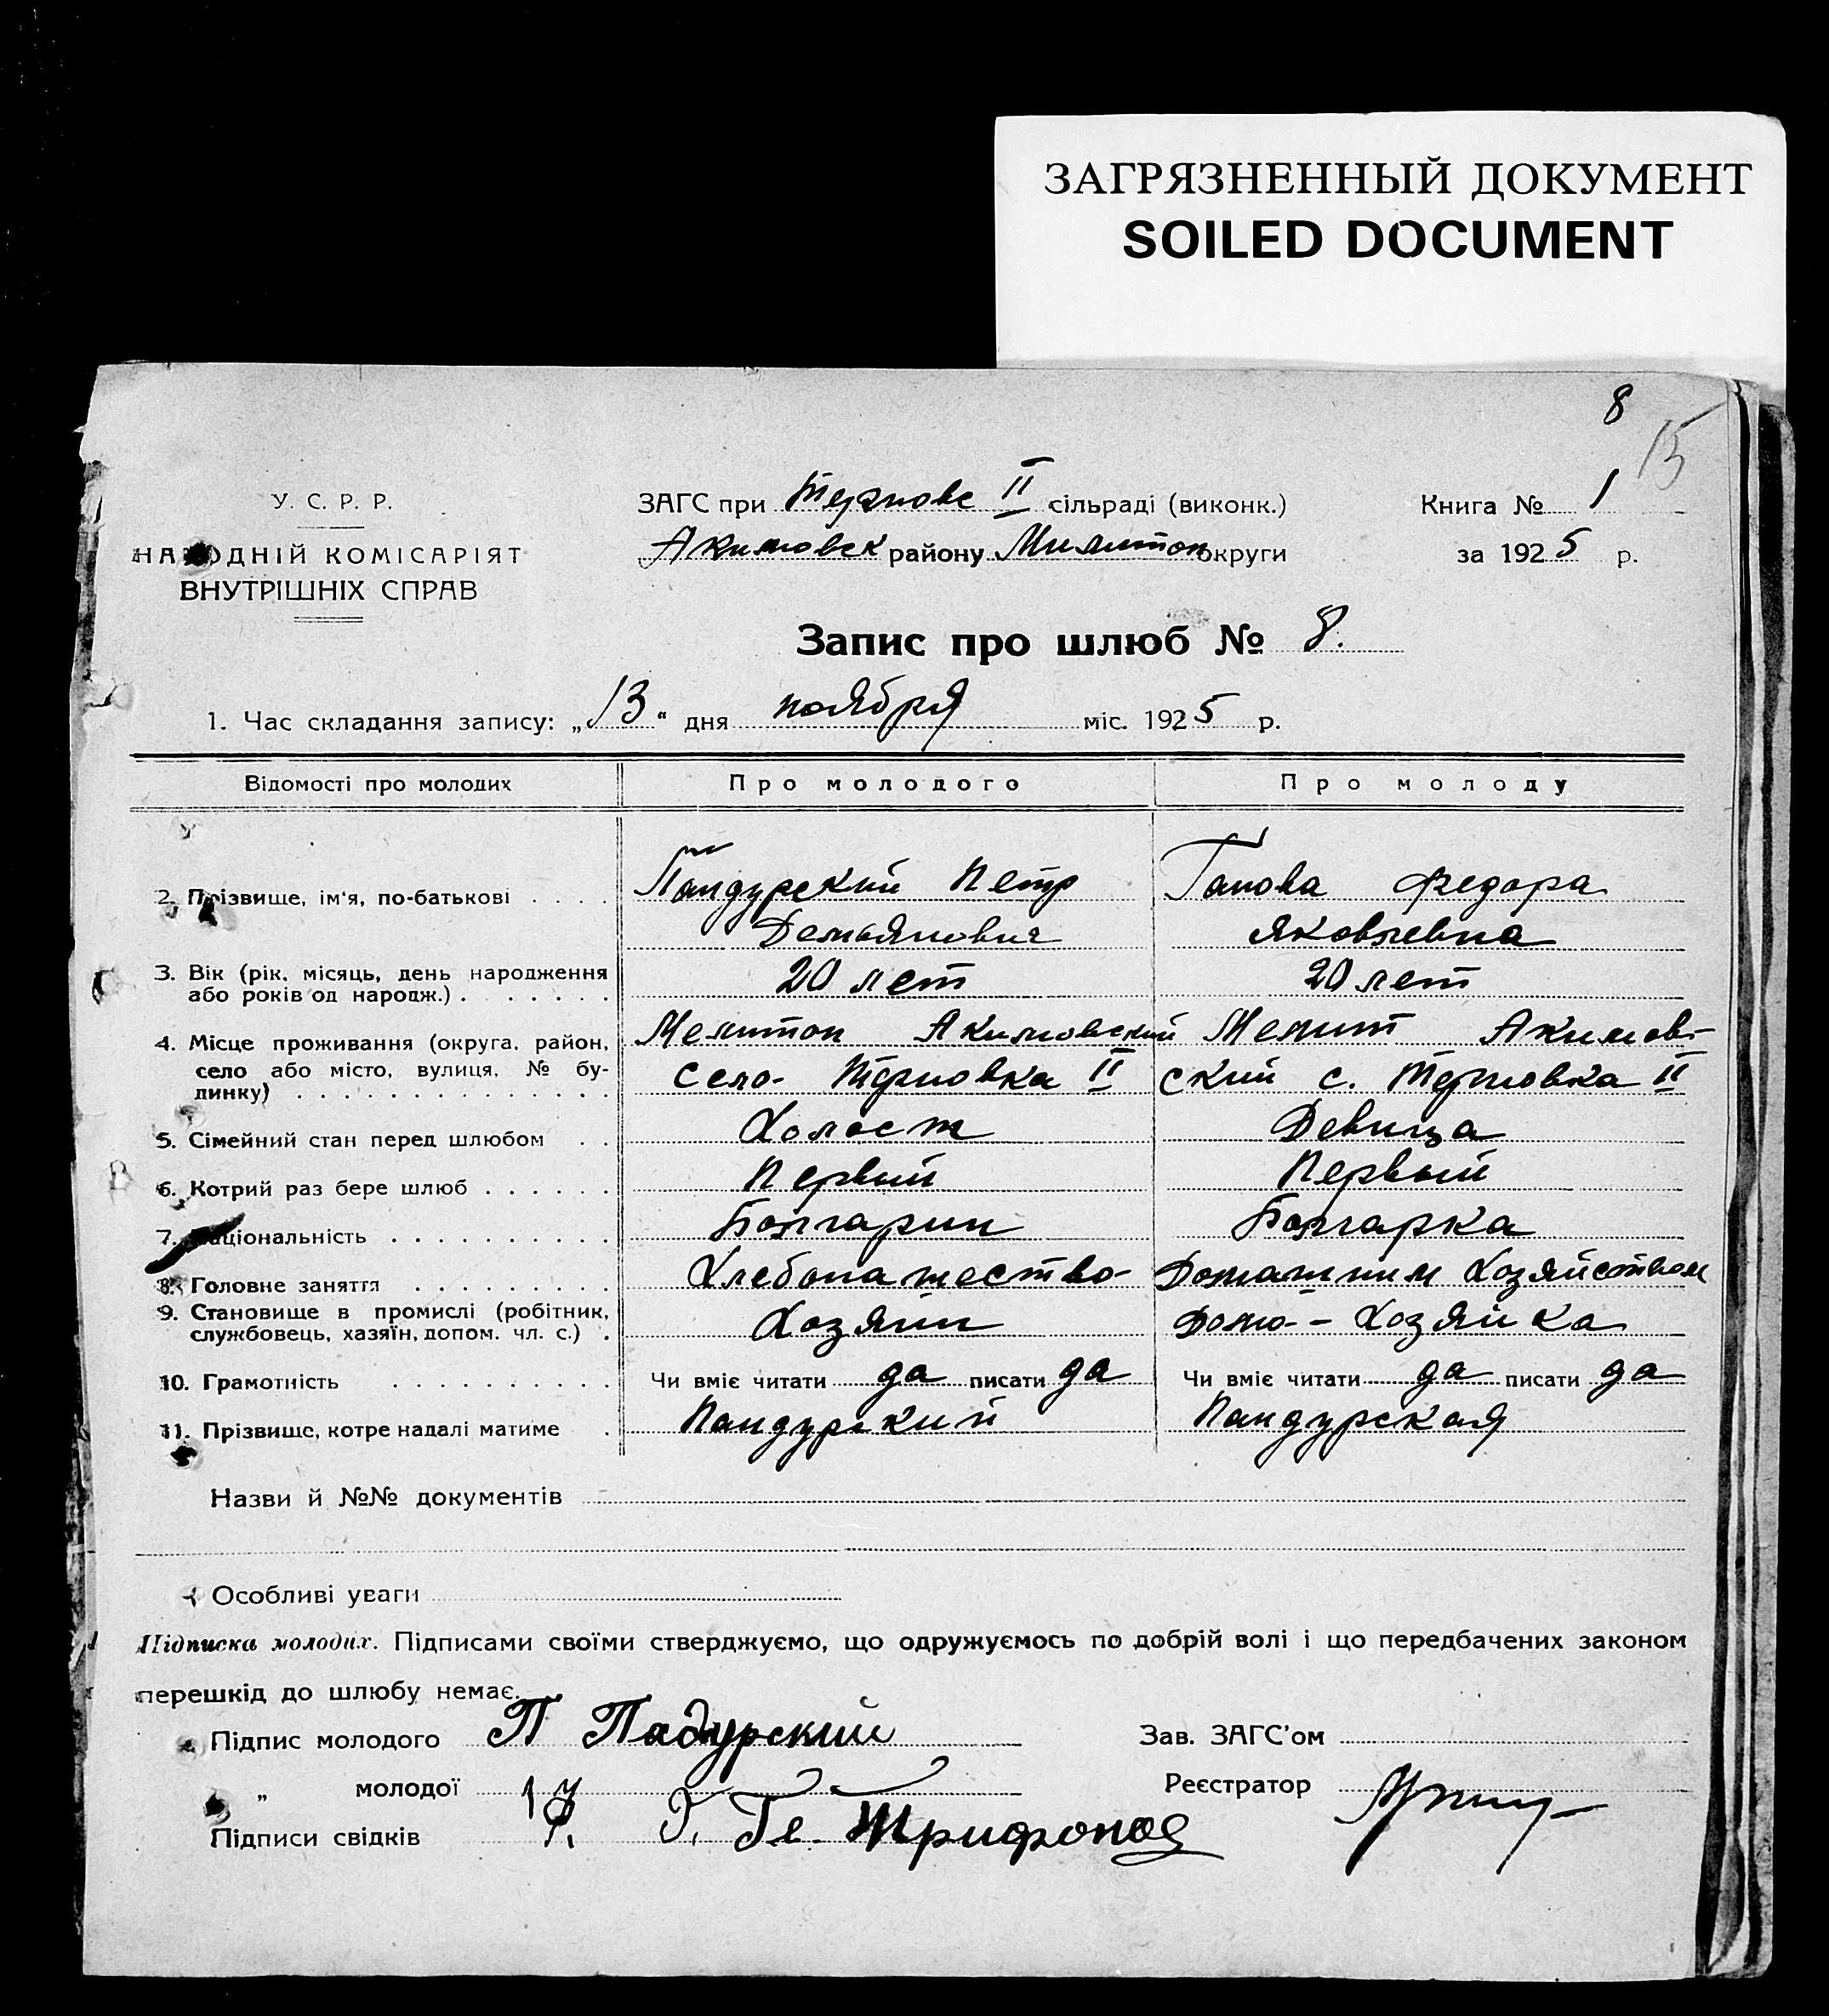 ЗАГРЯЗНЕННЫЙ ДОКУМЕНТ
SOILED DOCUMENT
8
15
У. С. Р. Р.
НАРОДНІЙ КОМІСАРІЯТ
ВНУТРІШНІХ СПРАВ
ЗАГС при Терновс II сільраді (виконк.)
Акимовск району Милитоп округи
Книга № 1
за 1925 р.
Запис про шлюб № 8.
1. Час складання запису: „13“ дня ноября міс. 1925 р.
Відомості про молодих Про молодого Про молоду
2. Прізвище, ім'я, по-батькові . . . . Пандурский Петр Ганова Федора
Демьянович Яковлевна
3. Вік (рік, місяць, день народження
або років од народж.) . . . . . . . 20 лет 20 лет
4. Місце проживання (округа, район, Мелитоп Акимовский Мелит Акимов-
село або місто, вулиця, № бу- село- Терновка II ский с. Терновка II
динку) . . . . . . . . . . . . . .
5. Сімейний стан перед шлюбом . . Холост Девица
6. Котрий раз бере шлюб . . . . . . Первый Первый
7. Національність . . . . . . . . . . Болгарин Болгарка
8. Головне заняття . . . . . . . . . Хлебопашество- Домашним Хозяйством
9. Становище в промислі (робітник,
службовець, хазяїн, допом. чл. с.) . Хозяин Домо-Хозяйка
10. Грамотність . . . . . . . . . . Чи вміє читати да писати да Чи вміє читати да писати да
11. Прізвище, котре надалі матиме . Пандурский Пандурская
Назви й №№ документів
Особливі уваги
Підписка молодих. Підписами своїми стверджуємо, що одружуємось по добрій волі і що передбачених законом
перешкід до шлюбу немає.
Підпис молодого П Падурский Зав. ЗАГС'ом
„ молодої Реєстратор
Підписи свідків Трифонов